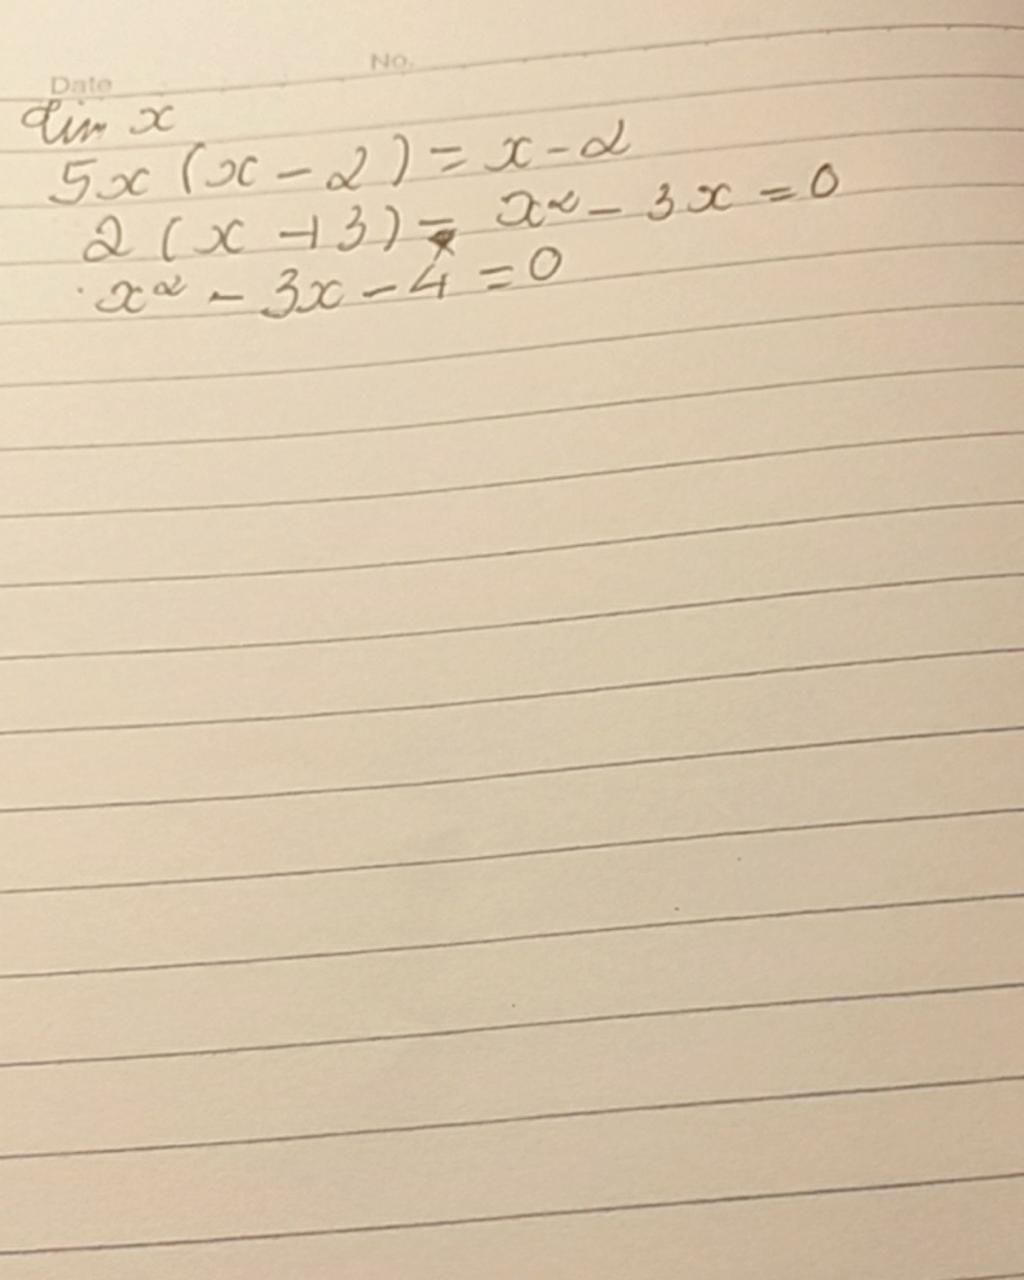 Date No.
Tìm x
5x (x - 2) = x - 2
2 (x + 3) - x² - 3x = 0
x² - 3x - 4 = 0